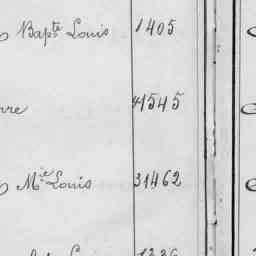 Bapte Louis 1405
rre 41545
Mce Louis 31462